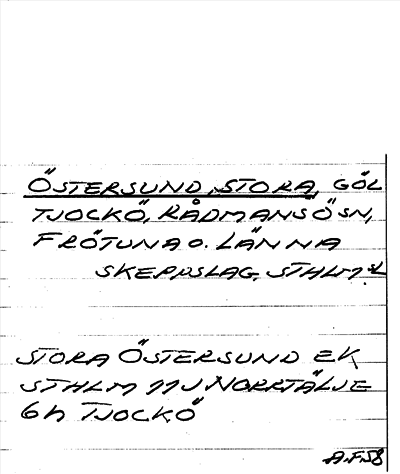 ÖSTERSUND, STORA, GÖL
TJOCKÖ, RÅDMANSÖ SN,
FRÖTUNA O. LÄNNA
SKEPPSLAG, STHLM:SL
STORA ÖSTERSUND EK
STHLM 11J NORRTÄLJE
6h TJOCKÖ
A.F.58